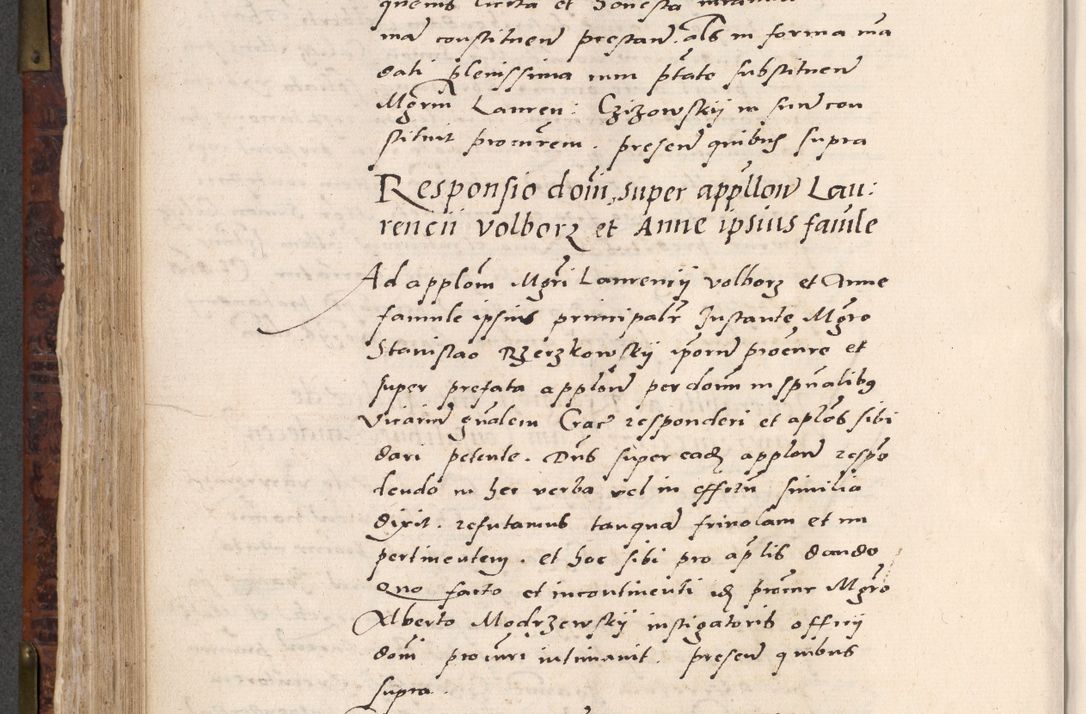 quevis licita et honesta
mam constituen prestan. Als in forma man
dati plenissima cum ptate substituen
Mgrm Lauren: Czizowskij in suum con
stituit procurem. presen quibus supra
Responsio dom̃i super appllon Lau:
rencii volborz et Anne ipsius famle
Ad applom Mgri Laurencij volborz et Anne
famule ipsius principalr Instante Mgro
Stanislao Rzerzkowskij ipsorum procure et
super prefata applone per dom in spualibus
vicarium gnalem Crac responderi et aplos sibi
dari petente. Dns super eadem applone respo
dendo in hec verba vel in effectu similia
dixit. refutamus tanquam frivolam et im
pertinentem. et hoc sibi pro aplis dando
Quo facto et incontinenti idem procur Mgro
Alberto Modrzewskij instigatoris officij
domi procuri intimavit. presen quibus
supra.